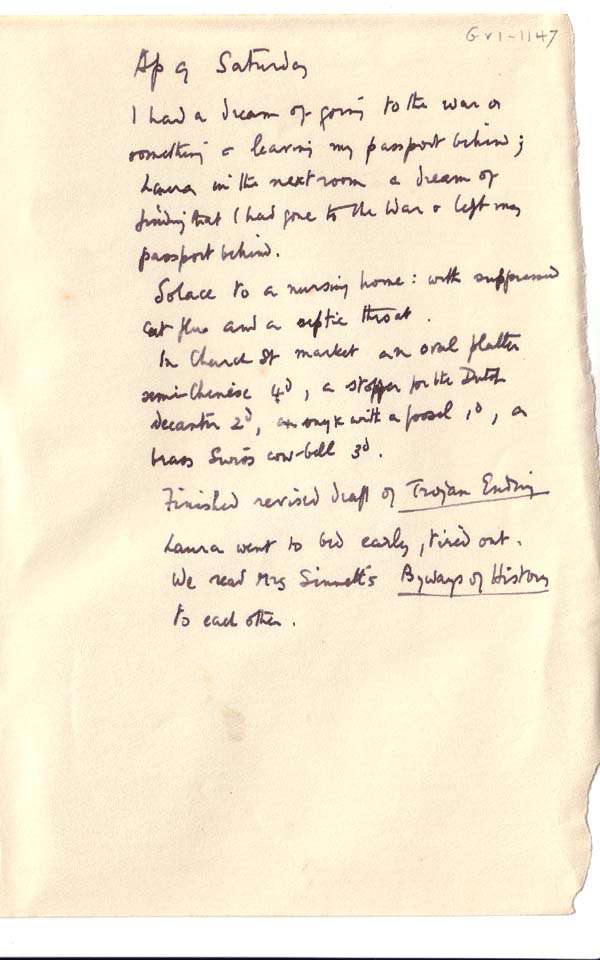 GVI-1147
Ap 9 Saturday
I had a dream of going to the war or
something & leaving my passport behind;
Laura in the next room a dream of
finding that I had gone to the War & left my
passport behind.
Solace to a nursing home: with suppressed
cat flu and a septic throat.
In Church St market an oval platter
semi-Chenèse 4d, a stopper for the Dutch
decanter 2d, an onyx with a fossil 1d, a
brass Swiss cow-bell 3d.
Finished revised draft of Trojan Ending
Laura went to bed early, tired out.
We read Mrs Sinnett's Byways of History
to each other.